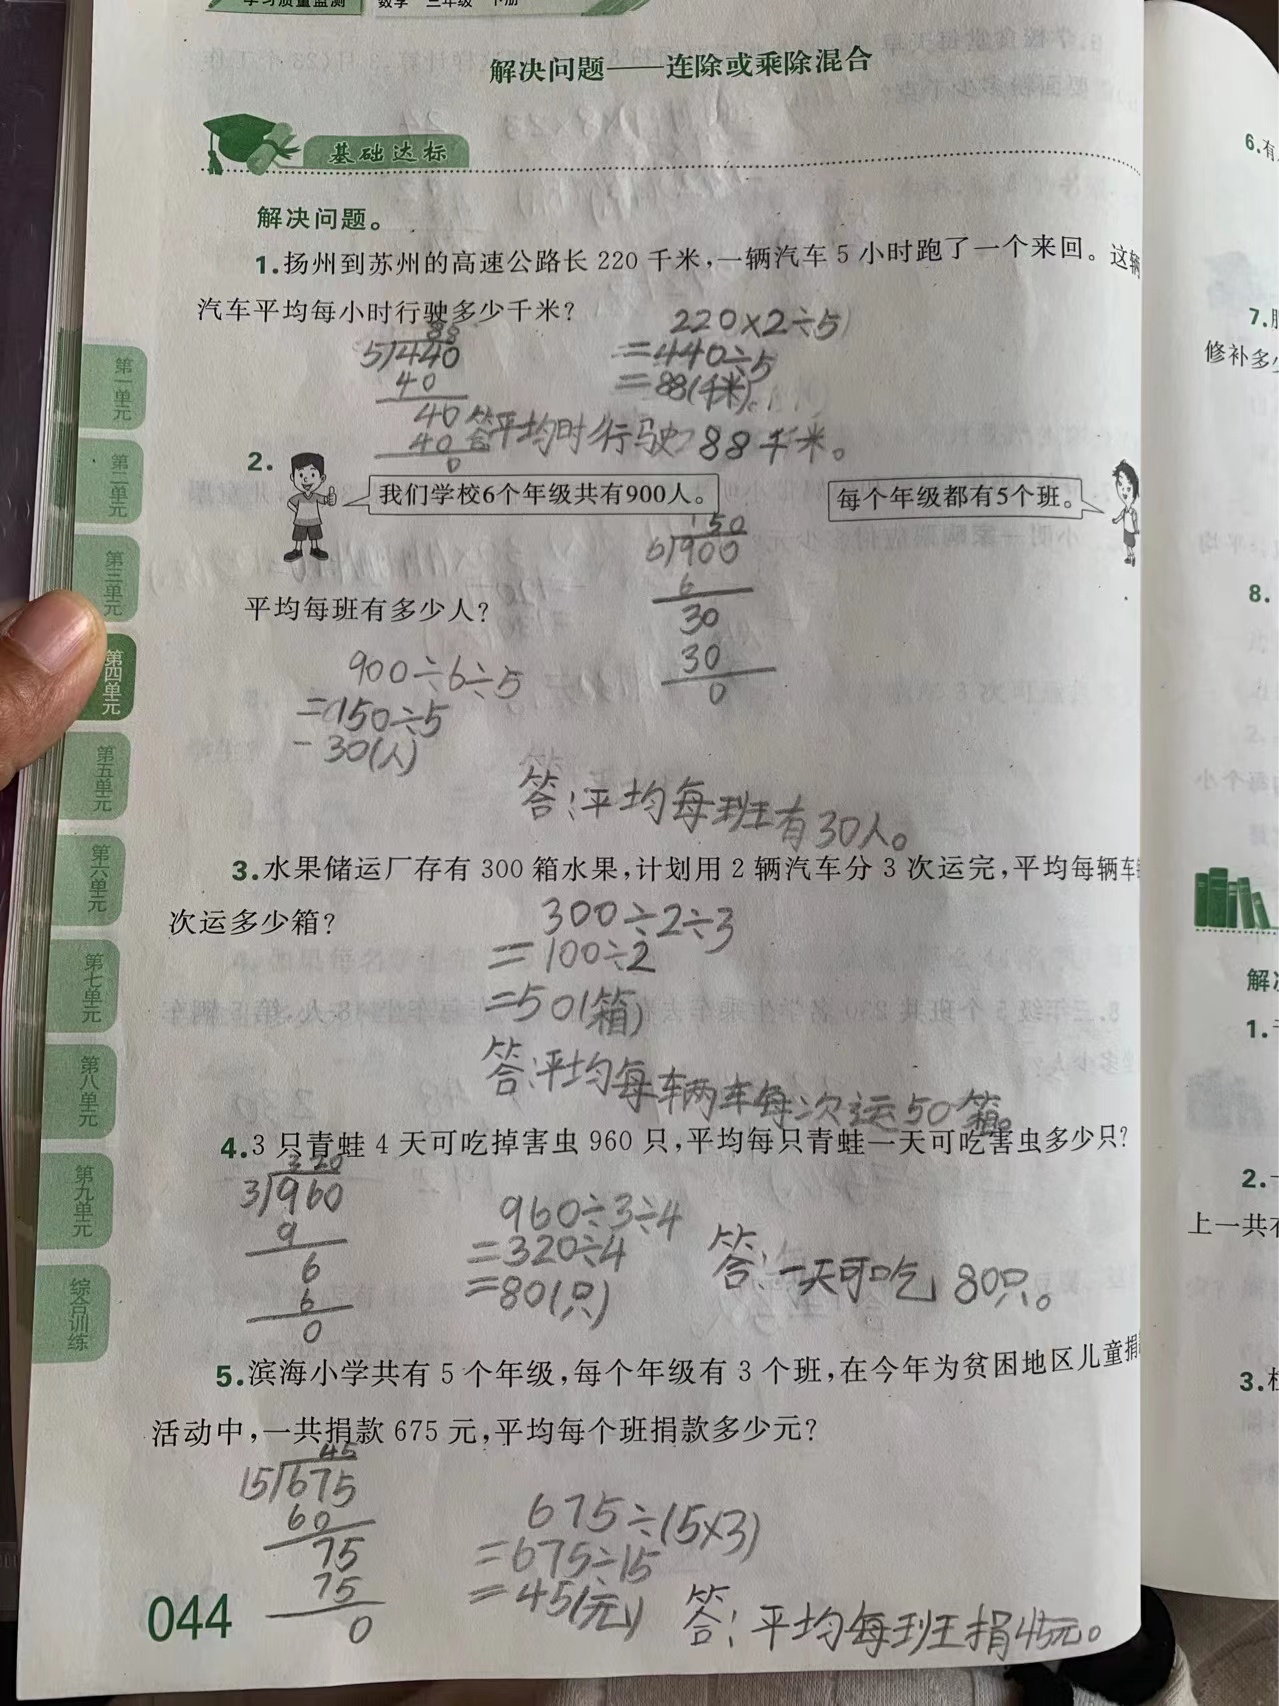 学习质量监测 数学 三年级 下册
解决问题——连除或乘除混合
基础达标
解决问题。
1.扬州到苏州的高速公路长 220 千米，一辆汽车 5 小时跑了一个来回。这辆
汽车平均每小时行驶多少千米?
88
5440
40
40
40
0
220×2÷5
=440÷5
=88(千米)
答平均时行驶88千米。
2.
我们学校6个年级共有900人。
每个年级都有5个班。
150
6900
6
30
30
0
平均每班有多少人?
900÷6÷5
=150÷5
=30(人)
答:平均每班有30人。
3.水果储运厂存有 300 箱水果，计划用 2 辆汽车分 3 次运完，平均每辆车每
次运多少箱?
300÷2÷3
=100÷2
=50(箱)
答:平均每车两车每次运50箱。
4.3 只青蛙 4 天可吃掉害虫 960 只，平均每只青蛙一天可吃害虫多少只?
320
3960
9
6
6
0
960÷3÷4
=320÷4
=80(只)
答:一天可吃80只。
5.滨海小学共有 5 个年级，每个年级有 3 个班，在今年为贫困地区儿童捐
活动中，一共捐款 675 元，平均每个班捐款多少元?
45
15675
60
75
75
0
675÷(5×3)
=675÷15
=45(元)
答:平均每班捐45元。
044
第一单元
第二单元
第三单元
第四单元
第五单元
第六单元
第七单元
第八单元
第九单元
综合训练
6.有
7.
修补多少
8.
解
1.
2.
上一共有
3.